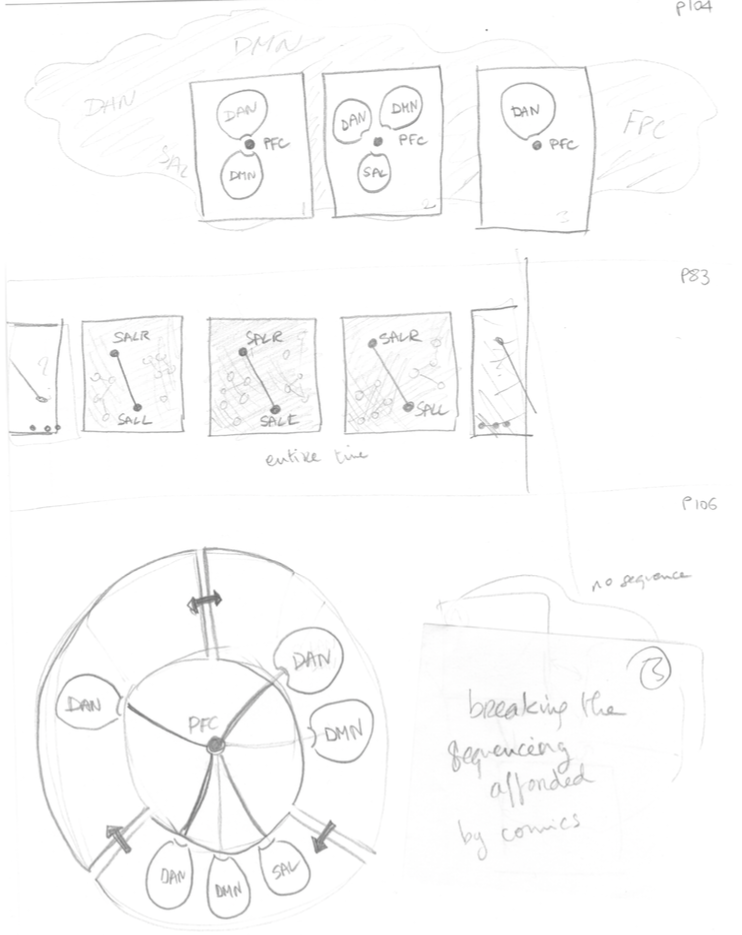 P104
DMN
DAN
SAL
FPC
DAN
PFC
DMN
1
DAN
DMN
PFC
SAL
2
DAN
PFC
3
P83
?
SALR
SALL
SALR
SALL
SALR
SALL
entire time
P106
no sequence
DAN
DAN
PFC
DMN
DAN
DMN
SAL
B
breaking the
sequencing
afforded
by comics